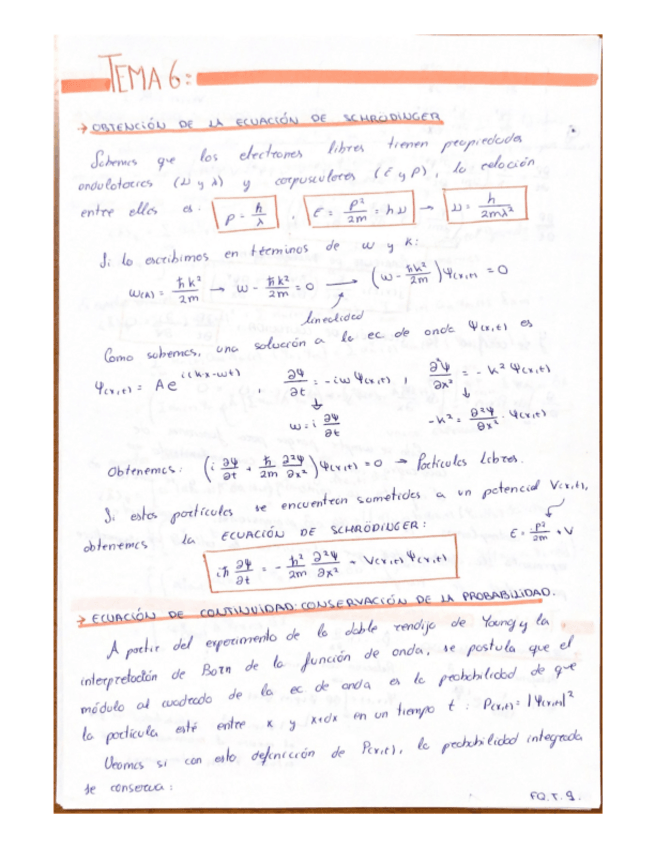 TEMA 6:
→ OBTENCIÓN DE LA ECUACIÓN DE SCHRÖDINGER
Sabemos que los electrones libres tienen propiedades
ondulatorias (ν y λ) y corpusculares (E y p), la relación
entre ellas es: p = h/λ , E = p²/2m = hν → ν = h/2mλ²
Si lo escribimos en términos de ω y k:
ω(k) = ħk²/2m → ω - ħk²/2m = 0 → (ω - ħk²/2m) Ψ(x,t) = 0
linealidad
Como sabemos, una solución a la ec de onda Ψ(x,t) es
Ψ(x,t) = A e^i(k·x-ωt) , ∂Ψ/∂t = -iω Ψ(x,t) , ∂²Ψ/∂x² = -k² Ψ(x,t)
ω = i ∂Ψ/∂t -k² = ∂²Ψ/∂x² · Ψ(x,t)
Obtenemos: (i ∂Ψ/∂t + ħ/2m ∂²Ψ/∂x²) Ψ(x,t) = 0 → Partículas libres.
Si estas partículas se encuentran sometidas a un potencial V(x,t),
obtenemos la ECUACIÓN DE SCHRÖDINGER: E = p²/2m + V
iħ ∂Ψ/∂t = - ħ²/2m ∂²Ψ/∂x² + V(x,t) Ψ(x,t)
→ ECUACIÓN DE CONTINUIDAD: CONSERVACIÓN DE LA PROBABILIDAD.
A partir del experimento de la doble rendija de Young y la
interpretación de Born de la función de onda, se postula que el
módulo al cuadrado de la ec de onda es la probabilidad de que
la partícula esté entre x y x+dx en un tiempo t : P(x,t) = |Ψ(x,t)|²
Veamos si con esta definición de P(x,t), la probabilidad integrada
se conserva:
FQ.T.9.